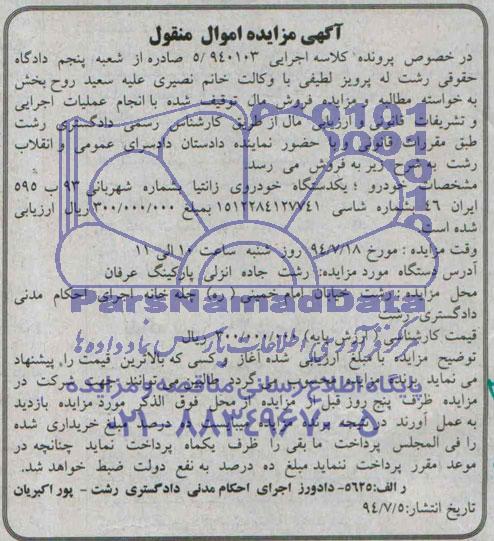 آگهی مزایده اموال منقول
در خصوص پرونده کلاسه اجرایی ۵/۹۴۰۱۰۳ صادره از شعبه پنجم دادگاه
حقوقی رشت له پرویز لطیفی با وکالت خانم نصیری علیه سعید روح بخش
به خواسته مطالبه و مزایده فروش مال توقیف شده با انجام عملیات اجرایی
و تشریفات قانونی و ارزیابی مال از طریق کارشناس رسمی دادگستری رشت
طبق مقررات قانونی و با حضور نماینده دادستان دادسرای عمومی و انقلاب
رشت به شرح زیر به فروش می رسد.
مشخصات خودرو : یکدستگاه خودروی زانتیا بشماره شهربانی ۹۳ ب ۵۹۵
ایران ۴۶ بشماره شاسی ۱۵۱۲۲۸۴۱۲۷۷۴۱ بمبلغ ۳۰۰/۰۰۰/۰۰۰ ریال ارزیابی
شده است.
وقت مزایده : مورخ ۹۴/۷/۱۸ روز شنبه ساعت ۱۰ الی ۱۱
آدرس دستگاه مورد مزایده: رشت جاده انزلی پارکینگ عرفان
محل مزایده : رشت خیابان امام خمینی (ره) چله خانه اجرای احکام مدنی
دادگستری رشت
قیمت کارشناسی (ارزش پایه) ۳۰۰/۰۰۰/۰۰۰ ریال
توضیح مزایده از مبلغ ارزیابی شده آغاز و کسی که بالاترین قیمت را پیشنهاد
می نماید برنده مزایده محسوب می گردد. طالبین می توانند جهت شرکت در
مزایده ظرف پنج روز قبل از مزایده از محل فوق الذکر مورد مزایده بازدید
به عمل آورند در نتیجه برنده مزایده میبایست ده درصد مبلغ خریداری شده
را فی المجلس پرداخت مابقی را ظرف یکماه پرداخت نماید چنانچه در
موعد مقرر پرداخت ننماید مبلغ ده درصد به نفع دولت ضبط خواهد شد.
ر الف: ۵۶۲۵- دادورز اجرای احکام مدنی دادگستری رشت - پور اکبریان
تاریخ انتشار: ۹۴/۷/۵
ParsNamadData
مرکز فرآوری اطلاعات پارس نماد داده ها
پایگاه اطلاع رسانی مناقصه و مزایده
۰۲۱-۸۸۳۴۹۶۷۰-۵